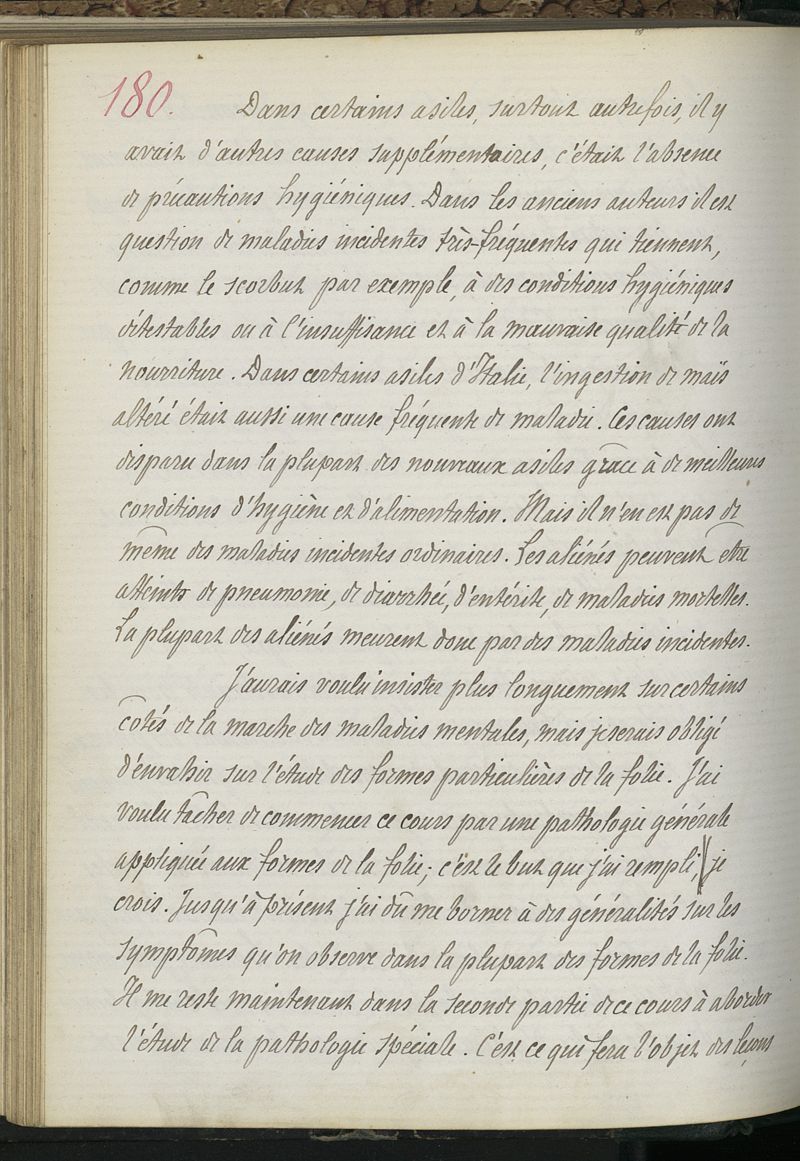 180.
Dans certains asiles, surtout autrefois, il y
avait d'autres causes supplémentaires, c'était l'absence
de précautions hygiéniques. Dans les anciens auteurs il est
question de maladies incidentes très-fréquentes qui tiennent,
comme le scorbut par exemple, à des conditions hygiéniques
détestables ou à l'insuffisance et à la mauvaise qualité de la
nourriture. Dans certains asiles d'Italie, l'ingestion de maïs
altéré était aussi une cause fréquente de maladie. Ces causes ont
disparu dans la plupart des nouveaux asiles grâce à de meilleures
conditions d'hygiène et d'alimentation. Mais il n'en est pas de
même des maladies incidentes ordinaires. Les aliénés peuvent être
atteints de pneumonie, de diarrhée, d'entérite, de maladies mortelles.
La plupart des aliénés meurent donc par des maladies incidentes.
J'aurais voulu insister plus longuement sur certains
côtés de la marche des maladies mentales, mais je serais obligé
d'envahir sur l'étude des formes particulières de la folie. J'ai
voulu tâcher de commencer ce cours par une pathologie générale
appliquée aux formes de la folie; c'est le but que j'ai rempli, je
crois. Jusqu'à présent j'ai dû me borner à des généralités sur les
symptômes qu'on observe dans la plupart des formes de la folie.
Il me reste maintenant dans la seconde partie de ce cours à aborder
l'étude de la pathologie spéciale. C'est ce qui fera l'objet des leçons